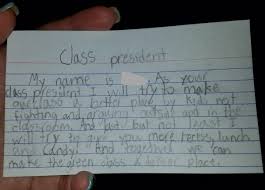 Class president
My name is . As your
class president I will try to make
our class a better place by kids not
fighting and arguing outside and in the
classroom. And last but not least I
will try to get you more recess, lunch
and Candy! And together we can
make the green class a better place.